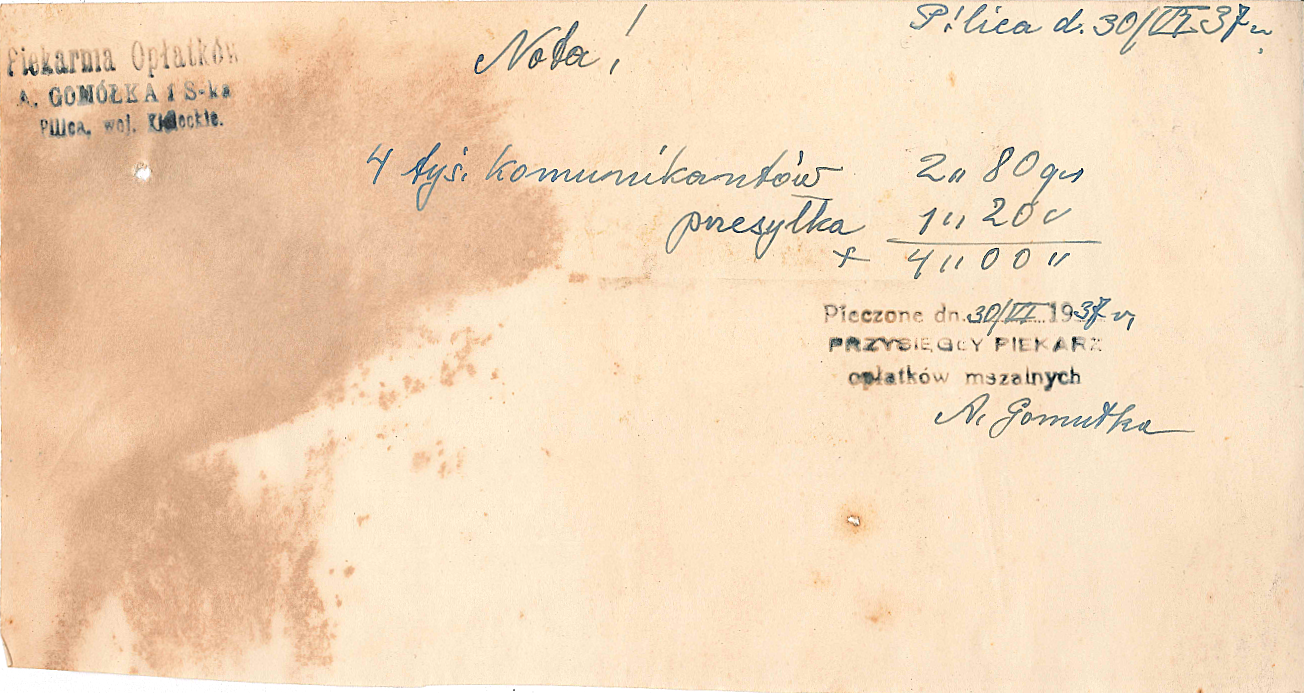 Pilica d. 30/VI 37 r.
Nota!
Piekarnia Opłatków
A. GOMÓŁKA i S-ka
Pilica, woj. Kieleckie.
4 tyś. komunikantów 2 „ 80 gr
przesyłka 1 „ 20 „
+ 4 „ 00 „
Pieczone dn. 30/VI 1937 r,
PRZYSIĘGŁY PIEKARZ
opłatków mszalnych
A. Gomułka